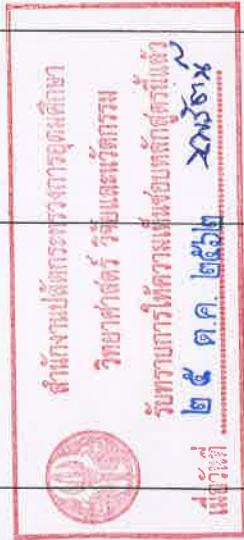 สำนักงานปลัดกระทรวงการอุดมศึกษา
วิทยาศาสตร์ วิจัยและนวัตกรรม
รับทราบการให้ความเห็นชอบหลักสูตรนี้แล้ว
เมื่อวันที่ ๒๕ ต.ค. ๒๕๖๒